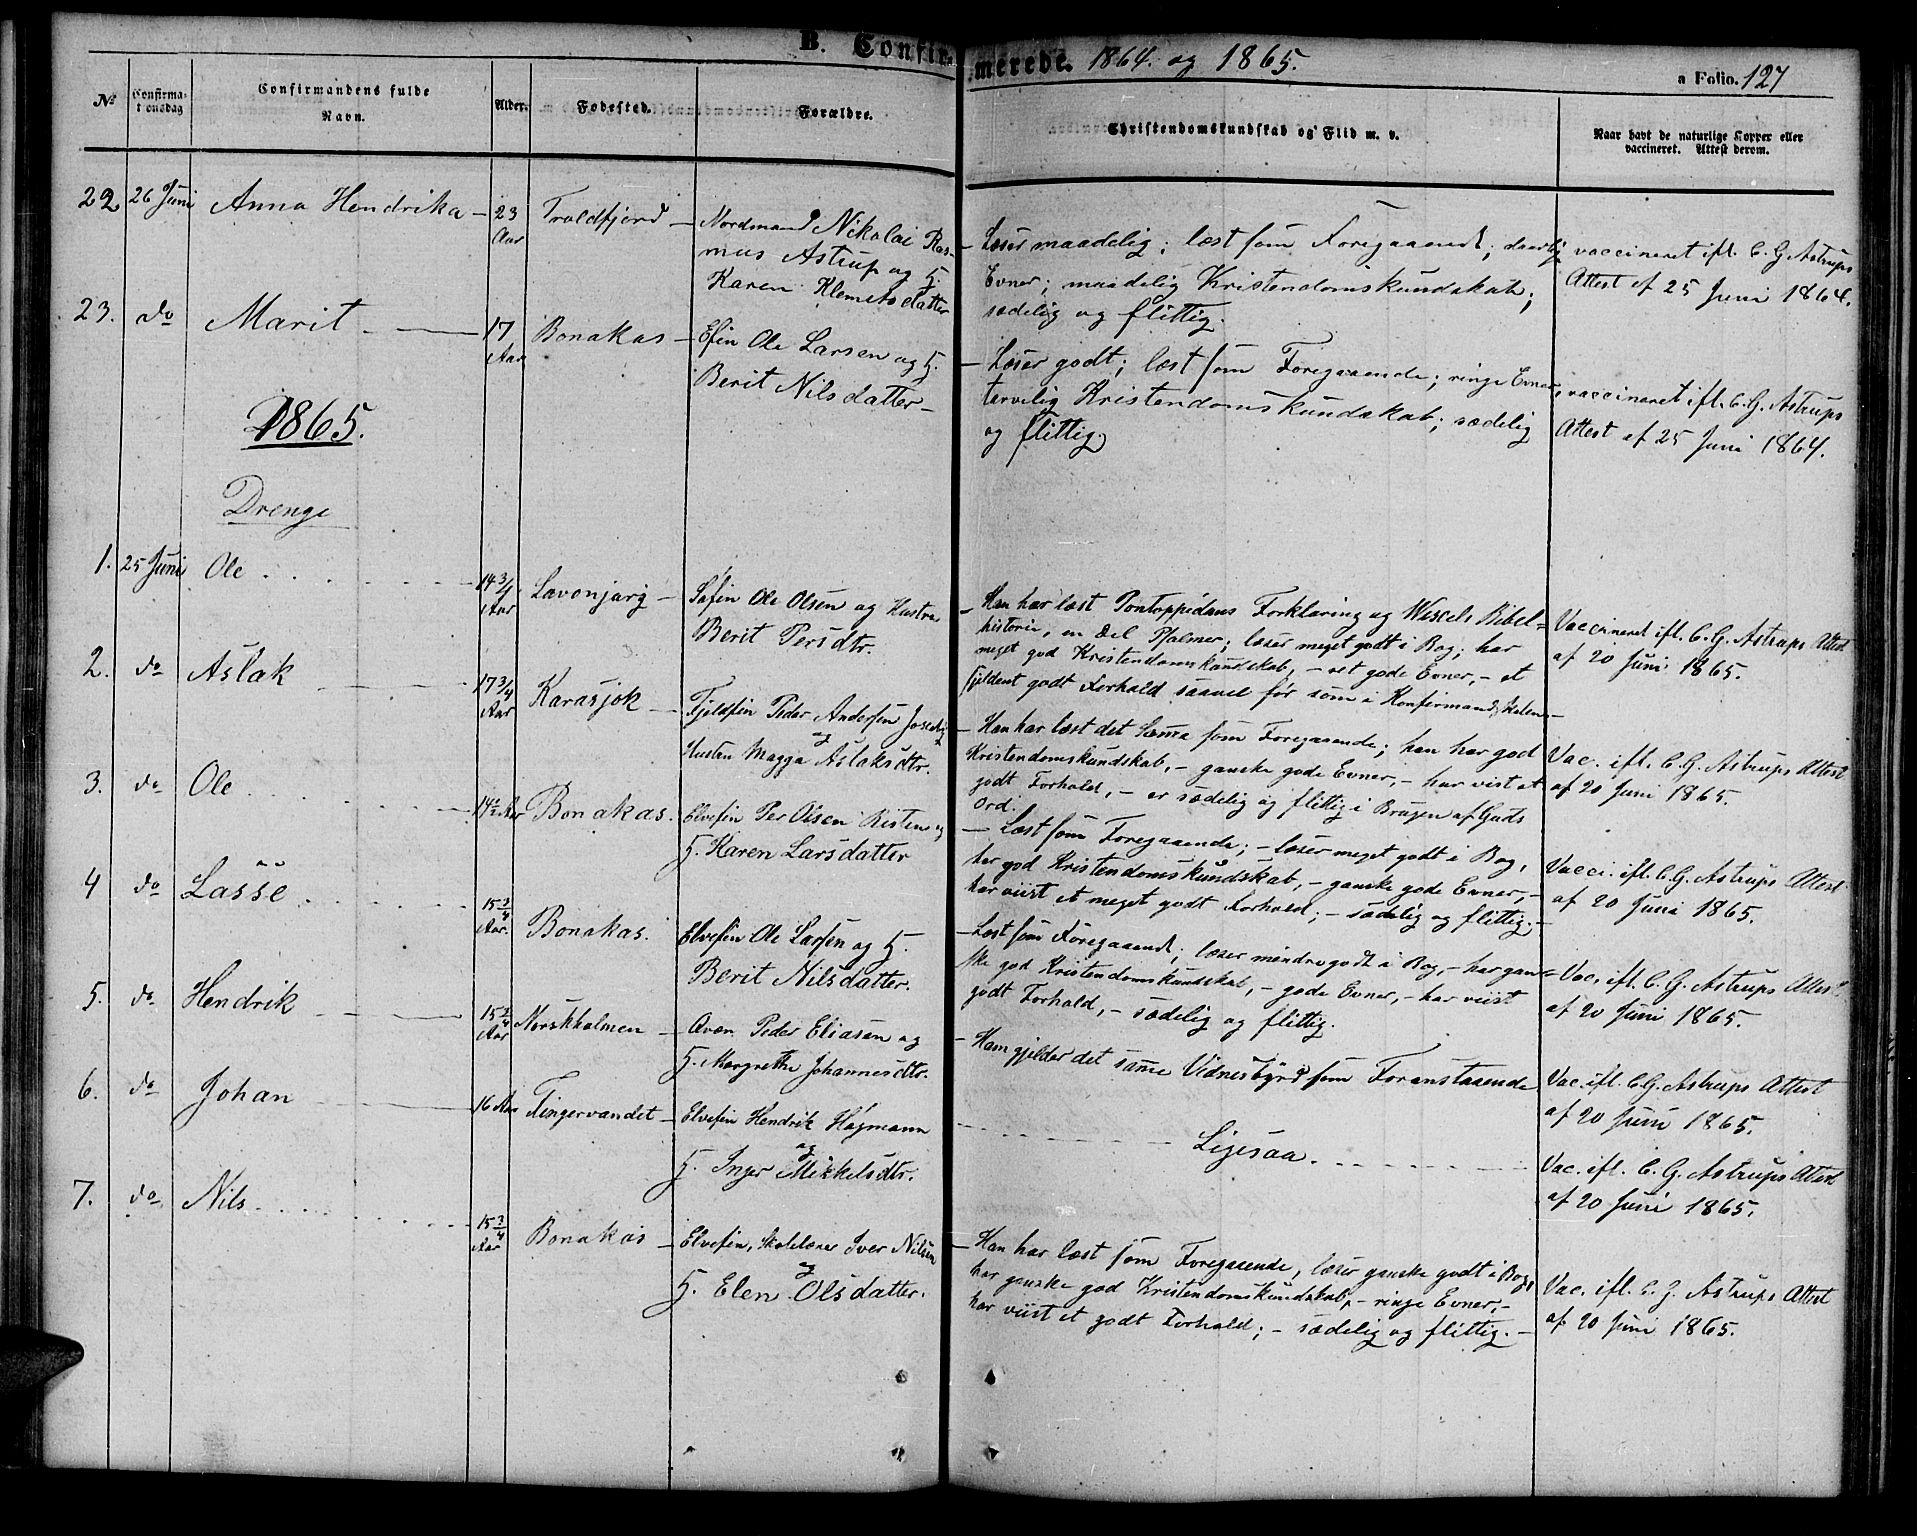 B. Confirmerede. 1864. og 1865.
a Folio. 127
No
Confirma-
tionsdag
Confirmandens fulde
Navn.
Alder.
Fødested.
Forældre.
Christendomskundskab og Flid m. v.
Naar havt de naturlige Kopper eller
vaccineret. Attest derom.
22 26 Juni Anna Hendrika 23 Aar Troldfjord
Nordmand Nikolai Ras-
mus Astrup og H.
Karen Klemetsdatter
Læser maadelig; læst som Foregaaende; daarlig
Evner; maadelig Kristendomskundskab;
sædelig og flittig.
vaccineret ifl. C. G. Astrups
Attest af 25 Juni 1864.
23. do Marit 17 Aar Bonakas
Efin Ole Larsen og H.
Berit Nilsdatter
Læser godt; læst som Foregaaende; ringe Evner,
tarvelig Kristendomskundskab; sædelig
og flittig
vaccineret ifl. C. G. Astrups
Attest af 25 Juni 1864.
1865.
Drenge
1. 25 Juni Ole 14 3/4 Aar Lavonjarg
Søfin Ole Olsen og Hustru
Berit Persdtr.
Han har læst Pontoppidans Forklaring og Wexels Bibel=
historie, en Del Psalmer; læser meget godt i Bog; har
meget god Kristendomskundskab, - ret gode Evner, - et
sjeldent godt Forhold saavel før som i Konfirmandskolen
Vaccineret ifl. C. G. Astrups Attest
af 20 Juni 1865.
2. do Aslak 17 3/4 Aar Karasjok
Fjeldfin Peder Andersen
og
Hustru Magga Aslaksdtr.
Han har læst det Samme som Foregaaende; han har god
Kristendomskundskab, - ganske gode Evner, - har vist et
godt Forhold, - er sædelig og flittig i Brugen af Guds
Ord.
Vac. ifl. C. G. Astrups Attest
af 20 Juni 1865.
3. do Ole Aar Bonakas.
Elvefin Per Olsen Risten og
H. Karen Larsdatter
Læst som Foregaaende; - læser meget godt i Bog,
har god Kristendomskundskab, - ganske gode Evner, -
har viist et meget godt Forhold; - sædelig og flittig. -
Vacci. ifl. C. G. Astrups Attest
af 20 Juni 1865.
4 do Lasse 15 3/4 Aar. Bonakas.
Elvefin Ole Larsen og H.
Berit Nilsdatter.
Læst som Foregaaende; læser mindre godt i Bog, - har gan=
ske god Kristendomskundskab, - gode Evner, - har viist
godt Forhold, - sædelig og flittig.
Vac. ifl. C. G. Astrups Attest
af 20 Juni 1865.
5. do Hendrik Aar Norskholmen
Qvæn Peder Eliasen og
H. Margrethe Johannesdtr.
Ham gjelder det samme Vidnesbyrd som Foranstaaende
Vac. ifl. C. G. Astrups Attest
af 20 Juni 1865.
6. do Johan 16 Aar Fingervandet
Elvefin Hendrik Hágmann
og
H. Inger Mikkelsdtr.
Ligesaa.
Vac. ifl. C. G. Astrups Attest
af 20 Juni 1865.
7. do Nils 15 3/4 Aar Bonakas
Elvefin, Skolelærer Iver Nilsen
og
H. Elen Olsdatter.
Han har læst som Foregaaende, læser ganske godt i Bog,
har ganske god Kristendomskundskab, - ringe Evner; -
har viist et godt Forhold; - sædelig og flittig. -
Vac. ifl. C. G. Astrups Attest
af 20 Juni 1865.